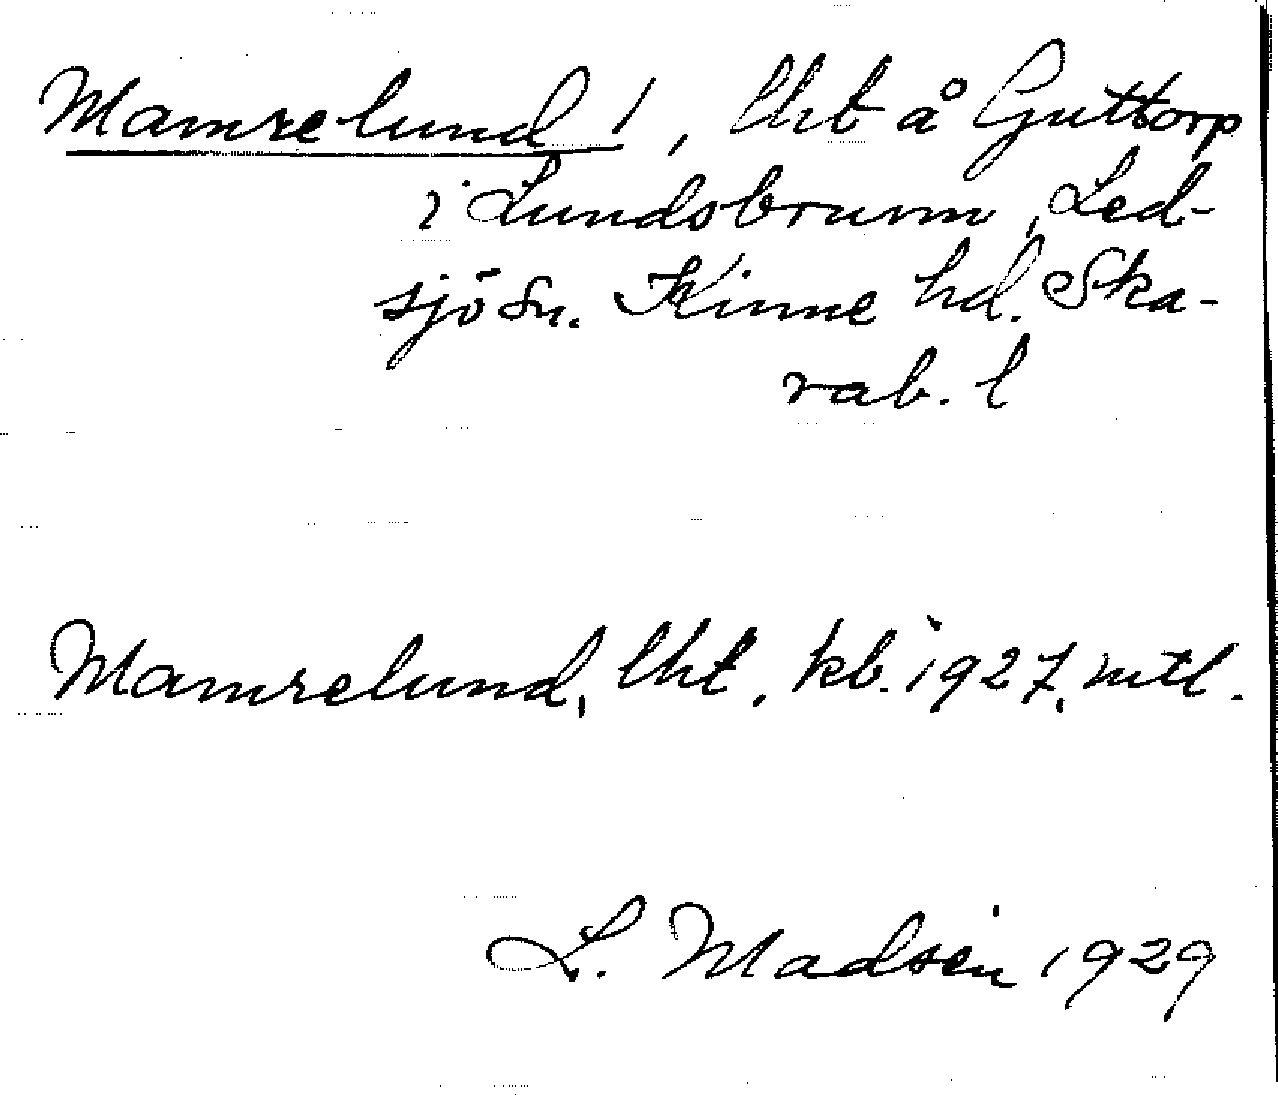 Mamrelund!, lht å Guttorp
i Lundsbrunn, Led-
sjö sn. Kinne hd. Ska-
rab. l
Mamrelund, lht. kb. 1927, mtl.
L. Madsén 1929